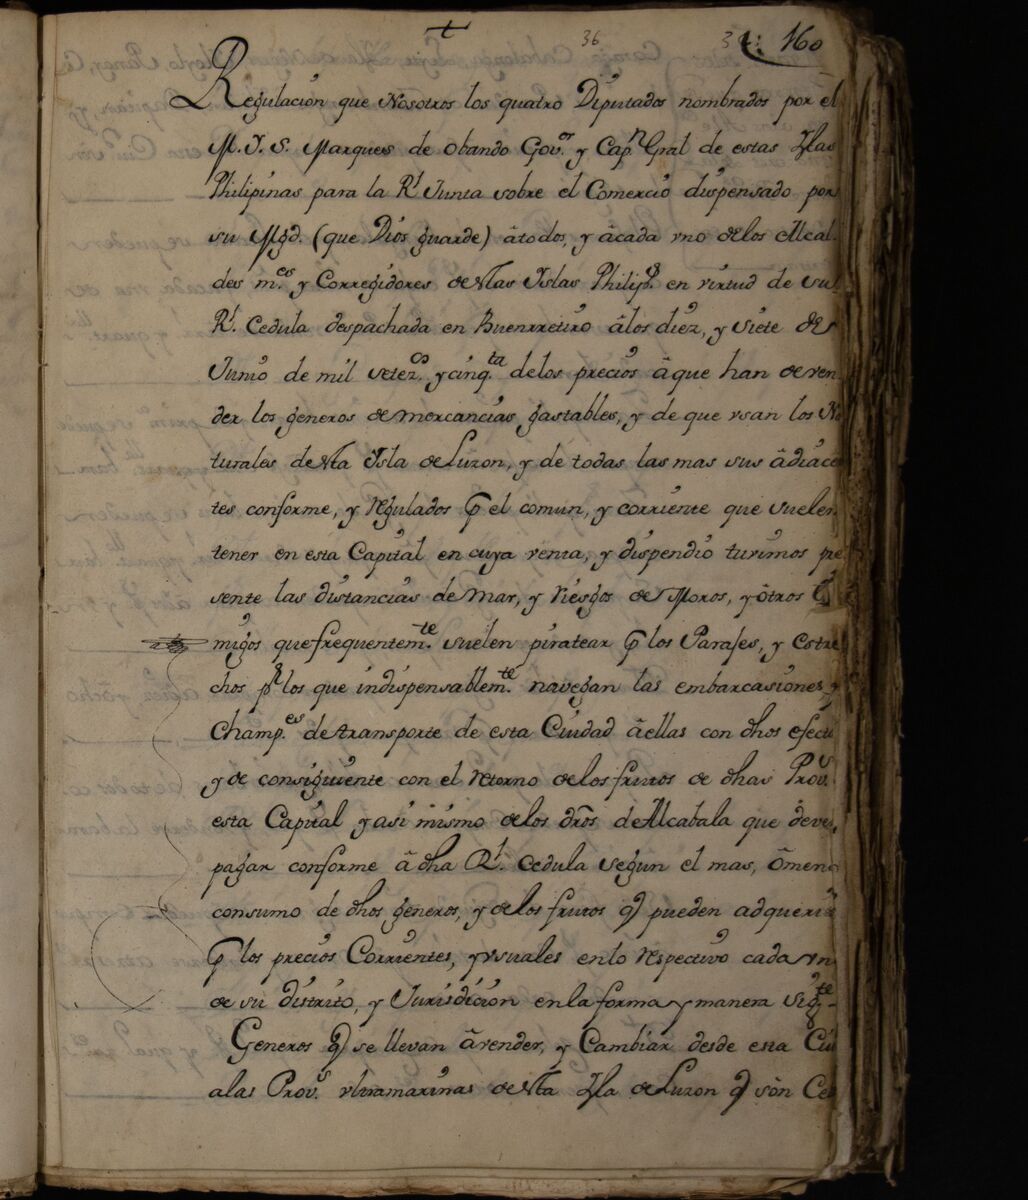 36 160
Regulación que Nosotros los quatro Diputados nombrados por el
M. Y. S. Marques de Obando Gov.or y Cap.n Gral de estas Yslas
Philipinas para la R.l Junta sobre el Comercio dispensado por
su Mgd. (que Dios guarde) âtodos, y âcada vno delos Alcal-
des m.es y Corregidores de Ntas Yslas Philip.s en virtud de su
R.l Cedula despachada en Buenrretiro âlos diez, y siete de
Junio de mil setez.os y cinq.ta delos precios âque han de ven
der los generos de mercancias gastables, y de que vsan los Na
turales de Nta Ysla de Luzon, y de todas las mas sus âdiacen
tes conforme, y regulados p el comun, y corriente que suelen
tener en esta Capital en cuya venta, y dispendio tuvimos pre
sente las distancias de Mar, y riesgos de Moros, y ôtros
migos que frequentem.te suelen piratear p los Parajes, y estre
chos p.r los que indispensablem.te navegan las embarcasiones y
Champ.es de transporte de esta Ciudad âellas con dhos efect
y de consiguiente con el retorno de los frutos de dhas Prov.s
esta Capital y asi mismo de los dros de Alcabala que deve
pagar conforme â dha R.l Cedula segun el mas, ômeno
consumo de dhos generos, y de los frutos q pueden adquerir
p los precios Corrientes, y vsuales en lo respectivo cada vn
de su distrito, y Jurisdicion en la forma y manera sig.te
Generos q se llevan âvender, y Cambiar desde esta Ciu
alas Prov.s vltramarinas de Nta Ysla de Luzon q son Ce